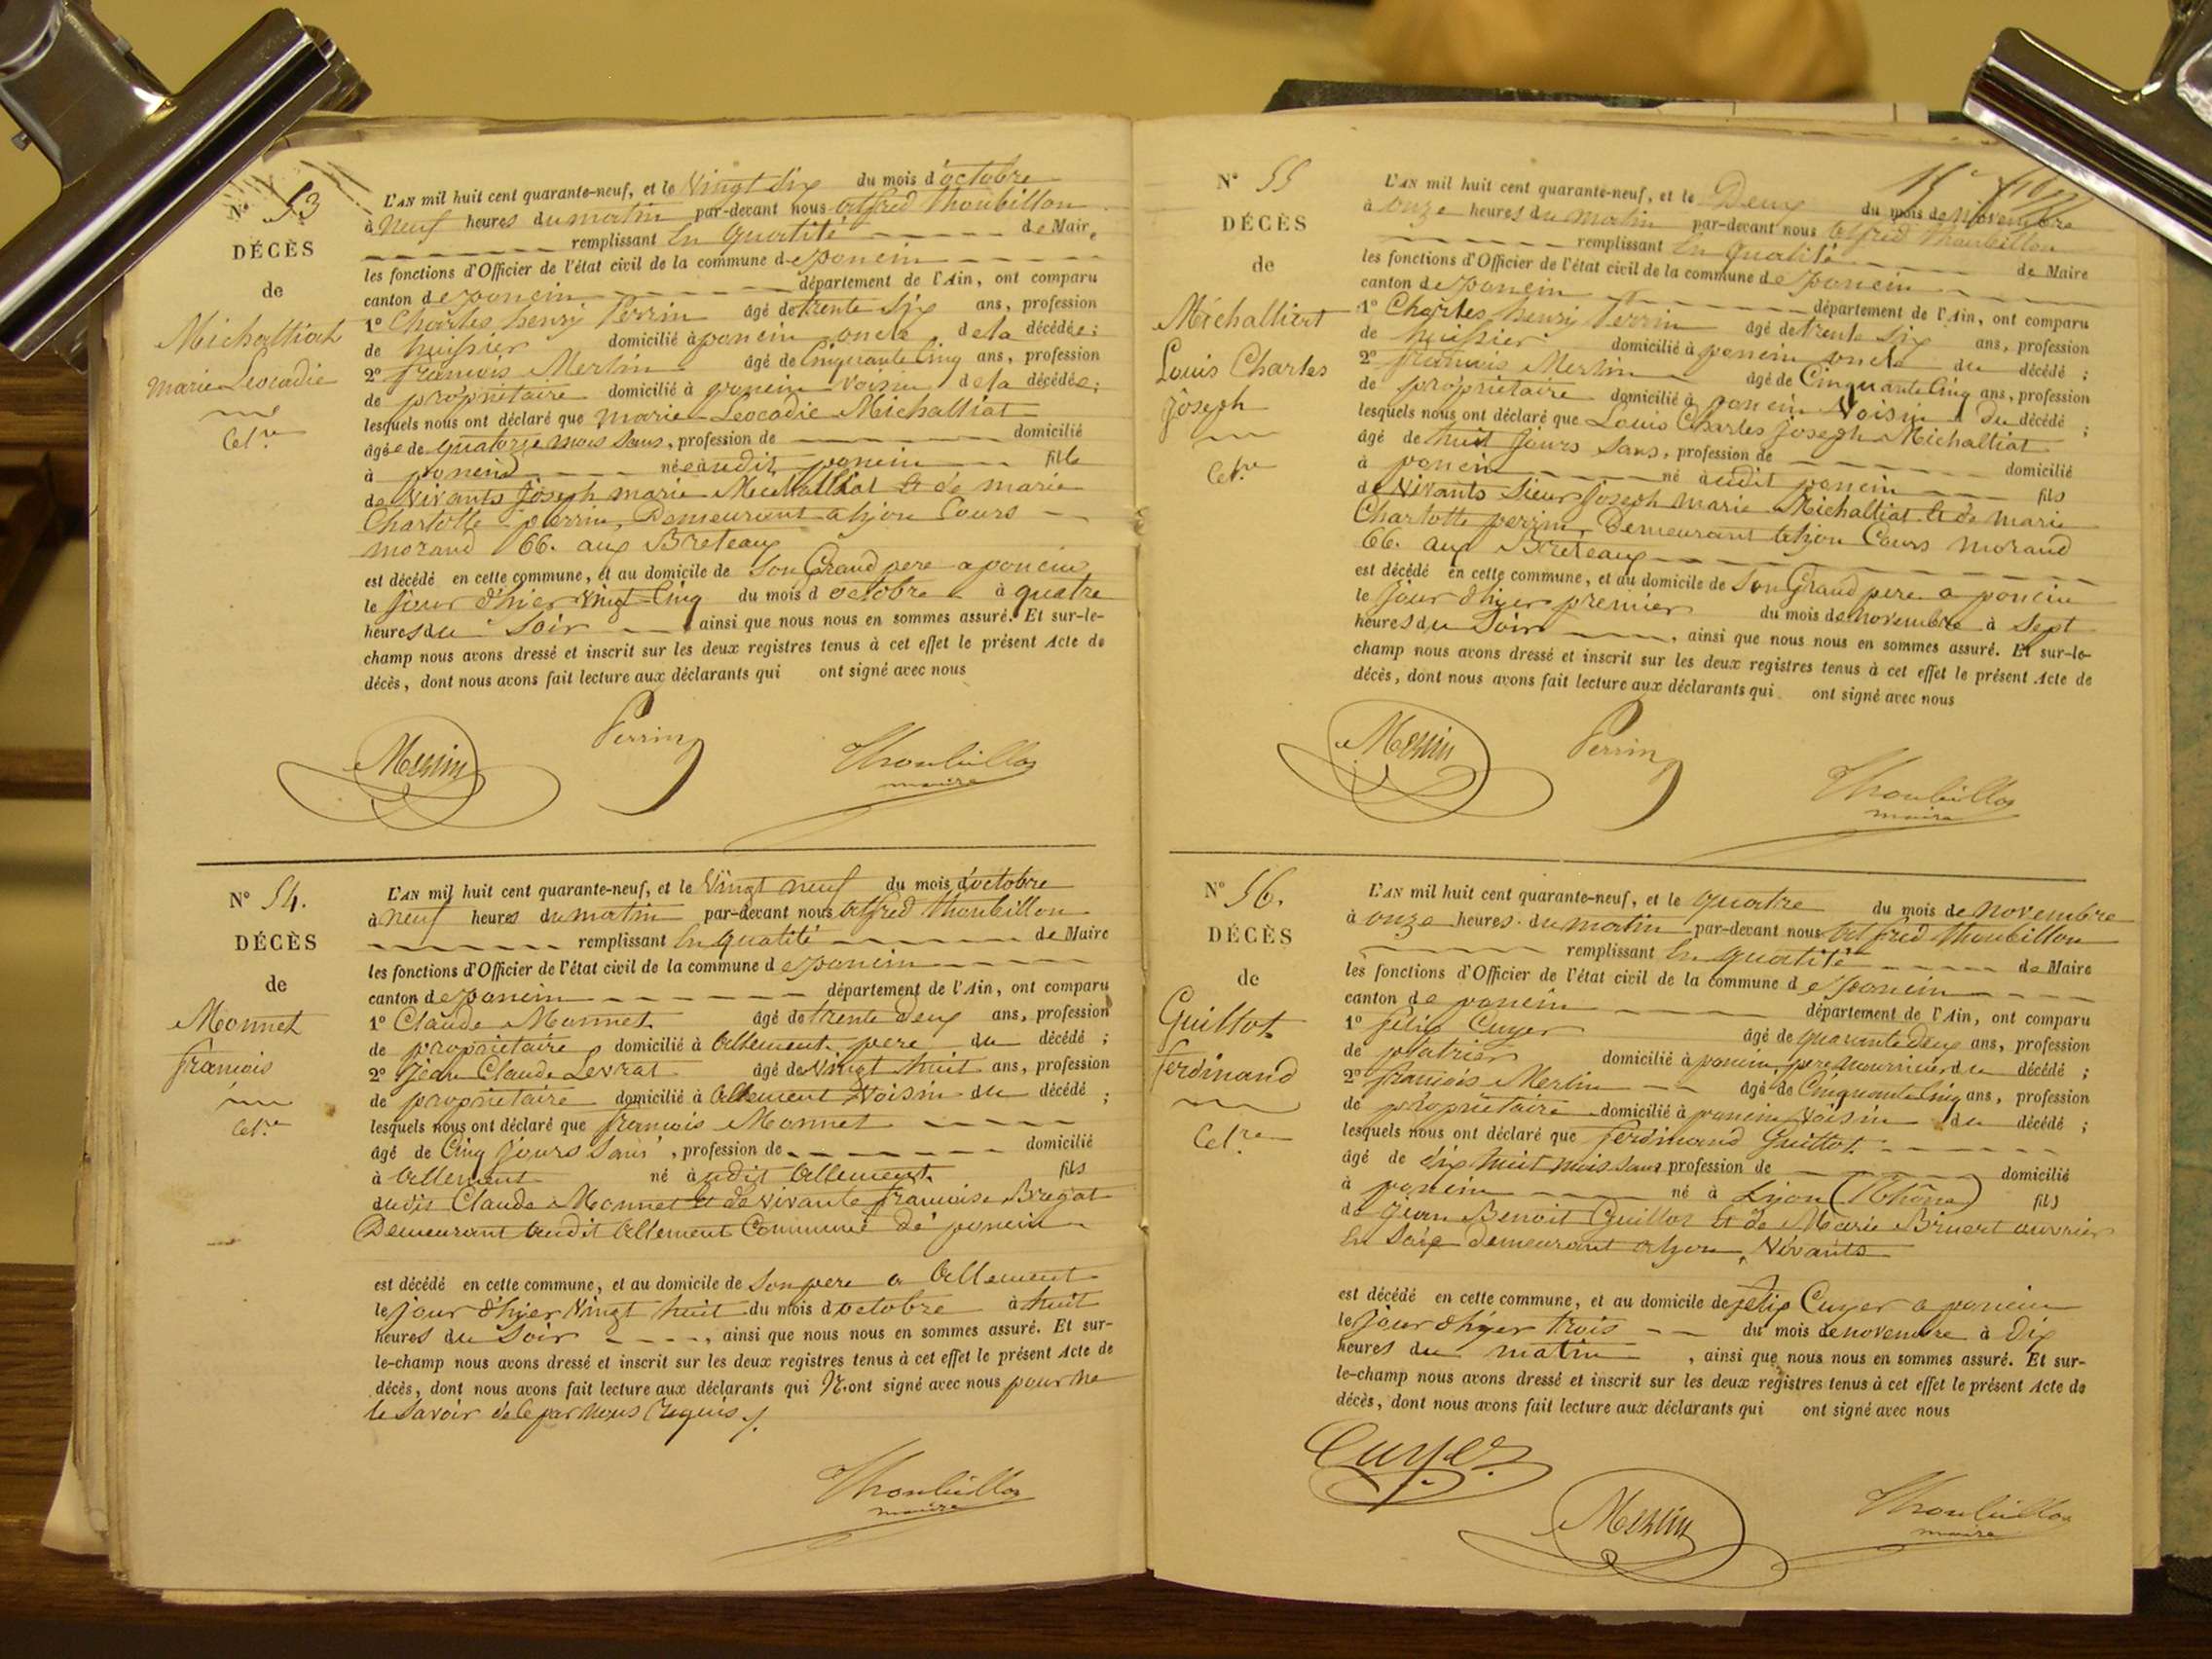 N° 53
DÉCÈS
de
Michalliat
Marie Leocadie
Cel.re
L'AN mil huit cent quarante-neuf, et le Vingt Six du mois d'octobre
à Neuf heures du matin par-devant nous Alfred Thoubillon
remplissant En qualité de Maire
les fonctions d'Officier de l'état civil de la commune de poncin
canton de poncin département de l'Ain, ont comparu
1° Charles henry Perrin âgé de trente Six ans, profession
de huissier domicilié à poncin oncle de la décédée;
2° françois Merlin âgé de Cinquante Cinq ans, profession
de propriétaire domicilié à poncin Voisin de la décédée;
lesquels nous ont déclaré que Marie Leocadie Michalliat
âgée de quatorze mois Sans, profession de domicilié
à poncin née audit poncin fille
de Vivants Joseph marie Michalliat Et de marie
Charlotte perrin, Demeurant a lyon Cours
morand 66. aux Breteaux
est décédé en cette commune, et au domicile de Son Grand pere a poncin
le jour d'hier Vingt Cinq du mois d octobre à quatre
heures du Soir ainsi que nous nous en sommes assuré. Et sur-le-
champ nous avons dressé et inscrit sur les deux registres tenus à cet effet le présent Acte de
décès, dont nous avons fait lecture aux déclarants qui ont signé avec nous
Merlin Perrin Thoubillon
maire
N° 54.
DÉCÈS
de
Monnet
françois
Cel.re
L'AN mil huit cent quarante-neuf, et le Vingt neuf du mois d'octobre
à neuf heures du matin par-devant nous Alfred Thoubillon
remplissant En qualité de Maire
les fonctions d'Officier de l'état civil de la commune de poncin
canton de poncin département de l'Ain, ont comparu
1° Claude Monnet âgé de trente deux ans, profession
de propriétaire domicilié à Allement pere du décédé;
2° Jean Claude Levrat âgé de Vingt huit ans, profession
de propriétaire domicilié à Allement Voisin du décédé;
lesquels nous ont déclaré que françois Monnet
âgé de Cinq jours Sans, profession de domicilié
à Allement né audit Allement fils
dudit Claude Monnet Et de vivante françoise Bragat
Demeurant audit Allement Commune de poncin
est décédé en cette commune, et au domicile de Son pere a Allement
le jour d'hier Vingt huit du mois d octobre à huit
heures du Soir, ainsi que nous nous en sommes assuré. Et sur-
le-champ nous avons dressé et inscrit sur les deux registres tenus à cet effet le présent Acte de
décès, dont nous avons fait lecture aux déclarants qui N'ont signé avec nous pour ne
le Savoir de ce par nous Requis
Thoubillon
maire
N° 55
DÉCÈS
de
Michalliat
Louis Charles
Joseph
Cel.re
L'AN mil huit cent quarante-neuf, et le Deux du mois de Novembre
à onze heures du matin par-devant nous Alfred Thoubillon
remplissant En qualité de Maire
les fonctions d'Officier de l'état civil de la commune de poncin
canton de poncin département de l'Ain, ont comparu
1° Charles henry Perrin âgé de trente Six ans, profession
de huissier domicilié à poncin oncle du décédé;
2° françois Merlin âgé de Cinquante Cinq ans, profession
de propriétaire domicilié à poncin Voisin du décédé;
lesquels nous ont déclaré que Louis Charles Joseph Michalliat
âgé de huit jours Sans, profession de domicilié
à poncin né audit poncin fils
de Vivants Sieur Joseph marie Michalliat Et de marie
Charlotte perrin, Demeurant a lyon Cours morand
66. aux Breteaux
est décédé en cette commune, et au domicile de Son Grand pere a poncin
le jour d'hyer premier du mois de novembre à Sept
heures du Soir, ainsi que nous nous en sommes assuré. Et sur-le-
champ nous avons dressé et inscrit sur les deux registres tenus à cet effet le présent Acte de
décès, dont nous avons fait lecture aux déclarants qui ont signé avec nous
Merlin Perrin Thoubillon
maire
N° 56.
DÉCÈS
de
Guillot
ferdinand
Cel.re
L'AN mil huit cent quarante-neuf, et le quatre du mois de novembre
à onze heures du matin par-devant nous Alfred Thoubillon
remplissant En qualité de Maire
les fonctions d'Officier de l'état civil de la commune de poncin
canton de poncin département de l'Ain, ont comparu
1° félix Cuyer âgé de quarante deux ans, profession
de platrier domicilié à poncin, pere nourricier du décédé;
2° françois Merlin âgé de Cinquante Cinq ans, profession
de propriétaire domicilié à poncin Voisin du décédé;
lesquels nous ont déclaré que ferdinand Guillot
âgé de dix huit mois Sans profession de domicilié
à poncin né à Lyon (Rhône) fils
de Jean Benoit Guillot Et de Marie Bruert ouvrier
En Soie demeurant a lyon, Vivants
est décédé en cette commune, et au domicile de félix Cuyer a poncin
le jour d'hyer trois du mois de novembre à Dix
heures du matin, ainsi que nous nous en sommes assuré. Et sur-
le-champ nous avons dressé et inscrit sur les deux registres tenus à cet effet le présent Acte de
décès, dont nous avons fait lecture aux déclarants qui ont signé avec nous
Cuyer
Merlin Thoubillon
maire